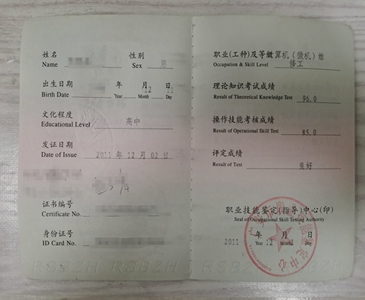 姓名 性别
Name Sex
出生日期 年 月 日
Birth Date Year Month Day
文化程度 高中
Educational Level
发证日期 2011 年 12 月 02 日
Date of Issue
证书编号
Certificate No.
身份证号
ID Card No.
职业(工种)及等级 计算机(微机)维
Occupation & Skill Level 修工
理论知识考试成绩
Result of Theoretical Knowledge Test 90.0
操作技能考核成绩
Result of Operational Skill Test 85.0
评定成绩
Result of Test 良好
职业技能鉴定(指导)中心(印)
Seal of Occupational Skill Testing Authority
2011 年 12 月 日
Year Month Day